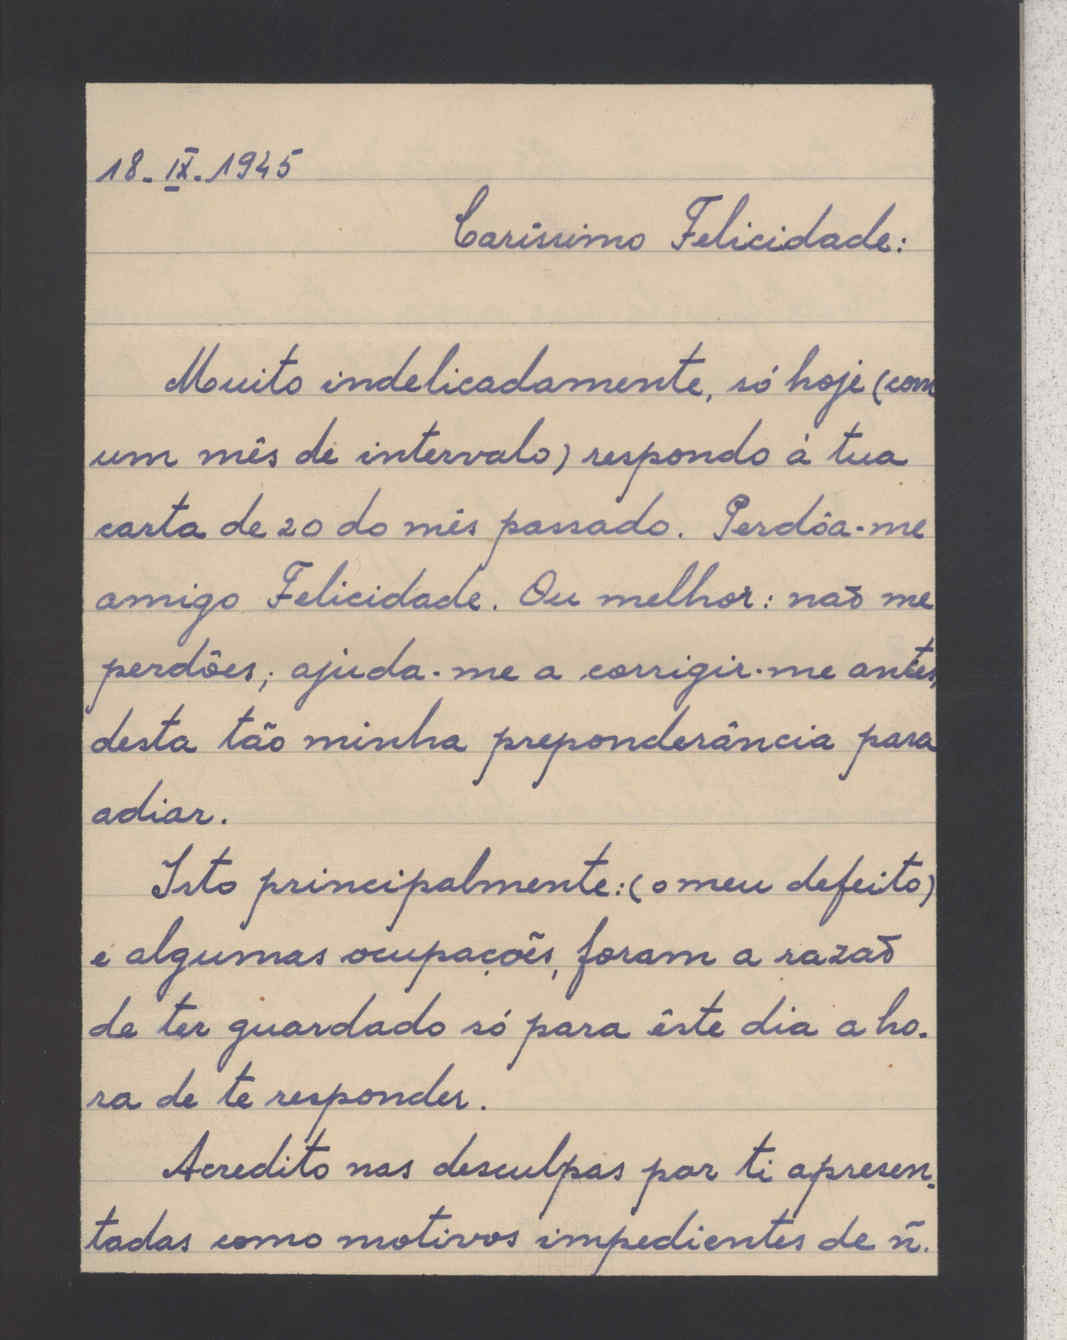 18. IX. 1945
Caríssimo Felicidade:
Muito indelicadamente, só hoje (com
um mês de intervalo) respondo á tua
carta de 20 do mês passado. Perdôa-me
amigo Felicidade. Ou melhor: não me
perdôes; ajuda-me a corrigir-me antes,
desta tão minha preponderância para
adiar.
Isto principalmente: (o meu defeito)
e algumas ocupações, foram a razão
de ter guardado só para êste dia a ho-
ra de te responder.
Acredito nas desculpas por ti apresen-
tadas como motivos impedientes de ñ.